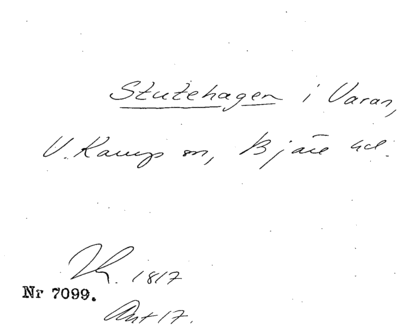 Stutehagen i Varan,
V. Karup sn, Bjäre hd.
Th. 1817
Nr 7099.
Ant 17.